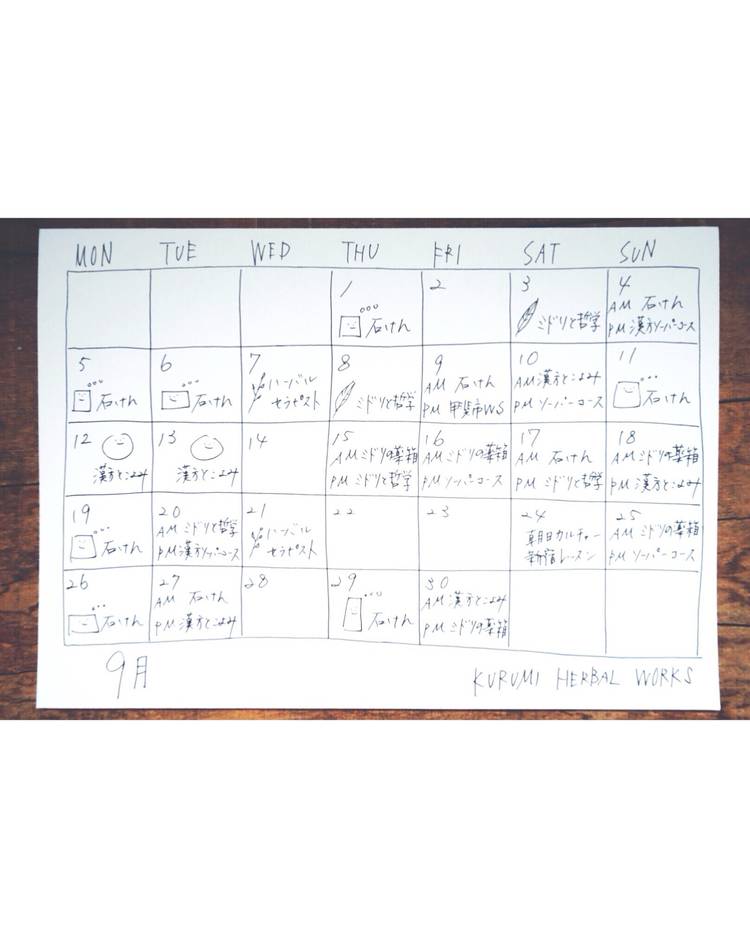 MON TUE WED THU FRI SAT SUN
1
石けん
2
3
ミドリと哲学
4
AM 石けん
PM 漢方ソーパーコース
5
石けん
6
石けん
7
ハーバル
セラピスト
8
ミドリと哲学
9
AM 石けん
PM 甲斐市WS
10
AM 漢方とこよみ
PM ソーパーコース
11
石けん
12
漢方とこよみ
13
漢方とこよみ
14
15
AM ミドリの薬箱
PM ミドリと哲学
16
AM ミドリの薬箱
PM ソーパーコース
17
AM 石けん
PM ミドリと哲学
18
AM ミドリの薬箱
PM 漢方とこよみ
19
石けん
20
AM ミドリと哲学
PM 漢方ソーパーコース
21
ハーバル
セラピスト
22
23
24
朝日カルチャー
新宿レッスン
25
AM ミドリの薬箱
PM ソーパーコース
26
石けん
27
AM 石けん
PM 漢方とこよみ
28
29
石けん
30
AM 漢方とこよみ
PM ミドリの薬箱
9月
KURUMI HERBAL WORKS